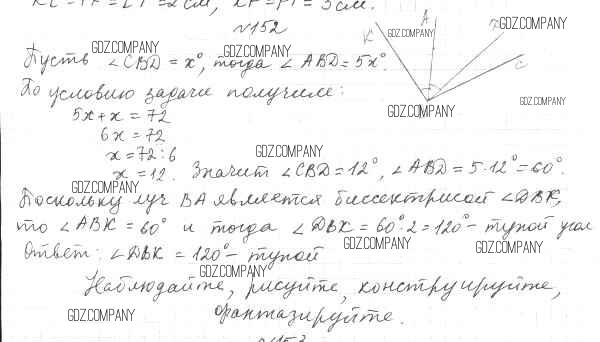 KL = PK = LT = 2 см, KP = PT = 3 см.
№152
GDZ.COMPANY
Пусть ∠CBD = x°, тогда ∠ABD = 5x°.
GDZ.COMPANY
GDZ.COMPANY
К
А
GDZ.COMPANY
GDZ.COMPANY
С
По условию задачи получим:
GDZ.COMPANY
GDZ.COMPANY
5x + x = 72
6x = 72
x = 72 : 6
GDZ.COMPANY
x = 12. Значит ∠CBD = 12°, ∠ABD = 5·12° = 60°.
GDZ.COMPANY
Поскольку луч BA является биссектрисой ∠DBK,
то ∠ABK = 60° и тогда ∠DBK = 60°·2 = 120° – тупой угол
GDZ.COMPANY
GDZ.COMPANY
GDZ.COMPANY
Ответ: ∠DBK = 120° – тупой
GDZ.COMPANY
Наблюдайте, рисуйте, конструируйте,
фантазируйте.
GDZ.COMPANY
№153